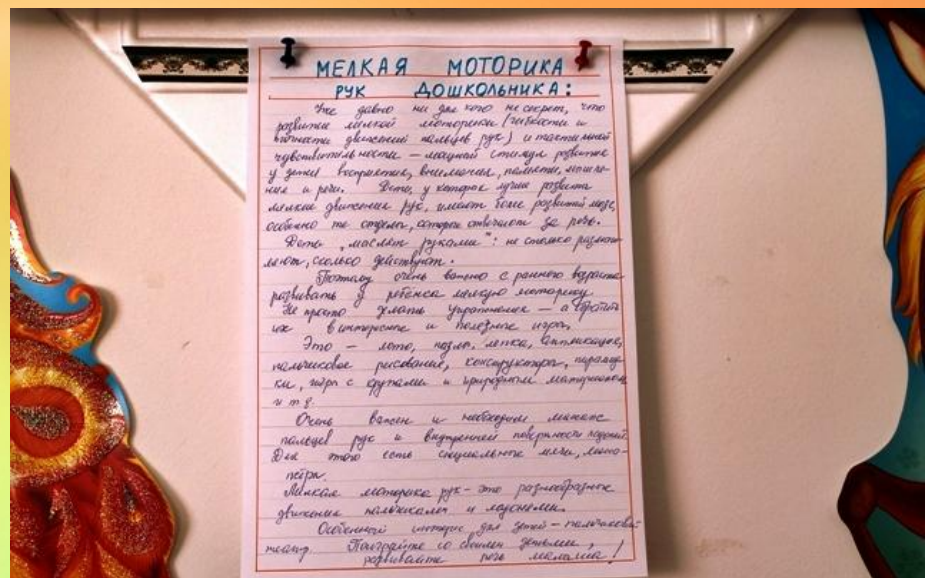 МЕЛКАЯ МОТОРИКА
РУК ДОШКОЛЬНИКА:
Уже давно ни для кого не секрет, что
развитие мелкой моторики (гибкости и
точности движений пальцев рук) и тактильной
чувствительности — мощный стимул развития
у детей восприятия, внимания, памяти, мышле-
ния и речи. Дети, у которых лучше развиты
мелкие движения рук, имеют более развитый мозг,
особенно те отделы, которые отвечают за речь.
Дети „мыслят руками": не столько размыш-
ляют, сколько действуют.
Поэтому очень важно с раннего возраста
развивать у ребёнка мелкую моторику.
Не просто делать упражнения — а обратить
их в интересные и полезные игры.
Это — лото, пазлы, лепка, аппликация,
пальчиковое рисование, конструкторы, пирамид-
ки, игры с крупами и природным материалом
и т д.
Очень важен и необходим массаж
пальцев рук и внутренней поверхности ладоней.
Для этого есть специальные мячи,
Мелкая моторика рук — это разнообразные
движения пальчиками и ладонями.
Особенный интерес для детей — пальчиковый
театр. Поиграйте со своими детьми,
развивайте речь малыша!